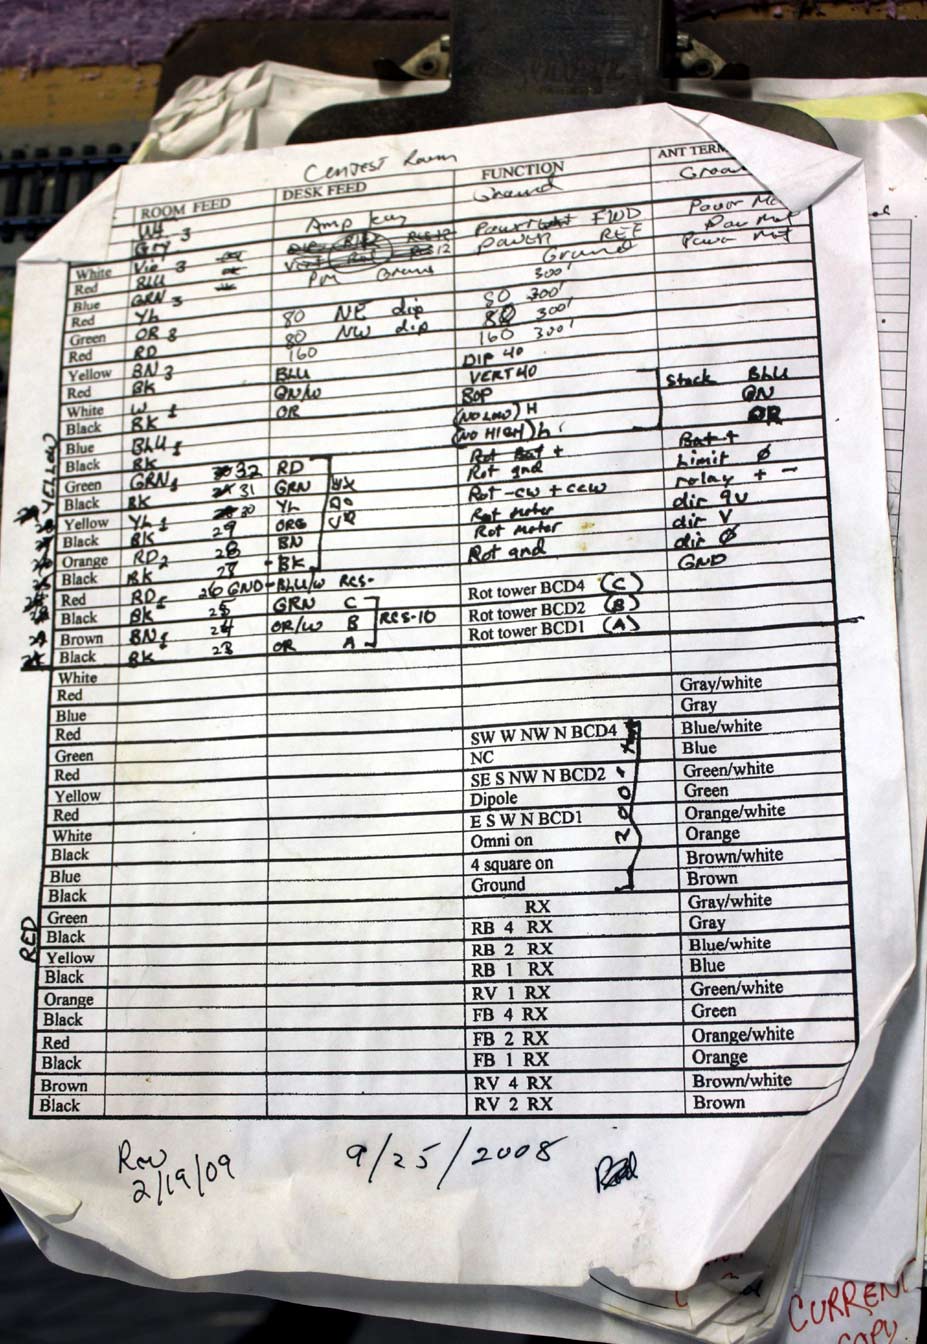 Contest Room
ROOM FEED DESK FEED FUNCTION ANT TERM
WH Ground
Gry 3 Amp key Power FWD Power Met
White Vio 3 POWER REF Pow Met
Red BLU Ground Power Met
Blue GRN 3 300'
Red YL 80 NE dip 80 300'
Green OR 3 80 NW dip 80 300'
Red RD 160 160 300'
Yellow BN 3 DIP 40
Red BK BLU VERT 40
White W 1 GN/W BOP Stack BLU
Black BK OR (NO LOW) H GN
Blue BLU 1 (NO HIGH) OR
Black BK Rot Bat + Bat +
Green GRN 1 32 RD Rot gnd Limit Ø
Black BK 31 GRN Rot -cw + ccw relay + -
Yellow YL 1 30 YL Rot Motor dir 9V
Black BK 29 ORG Rot Motor dir V
Orange RD 2 28 BN Rot gnd dir Ø
Black BK 27 BK GND
Red RD 26 GND BLU/W RCS- Rot tower BCD4 (C)
Black BK 25 GRN C RCS-10 Rot tower BCD2 (B)
Brown BN 1 24 OR/W B Rot tower BCD1 (A)
Black BK 23 OR A
YELLOW
White
Red Gray/white
Blue Gray
Red SW W NW N BCD4 Blue/white
Green NC Blue
Red SE S NW N BCD2 Green/white
Yellow Dipole Green
Red E S W N BCD1 Orange/white
White Omni on Orange
Black 4 square on Brown/white
Blue Ground Brown
Black RX Gray/white
Green RB 4 RX Gray
Black RB 2 RX Blue/white
Yellow RB 1 RX Blue
Black RV 1 RX Green/white
Orange FB 4 RX Green
Black FB 2 RX Orange/white
Red FB 1 RX Orange
Black RV 4 RX Brown/white
Brown RV 2 RX Brown
Black
RED
Rev 9/25/2008
2/19/09
CURRENT
COPY